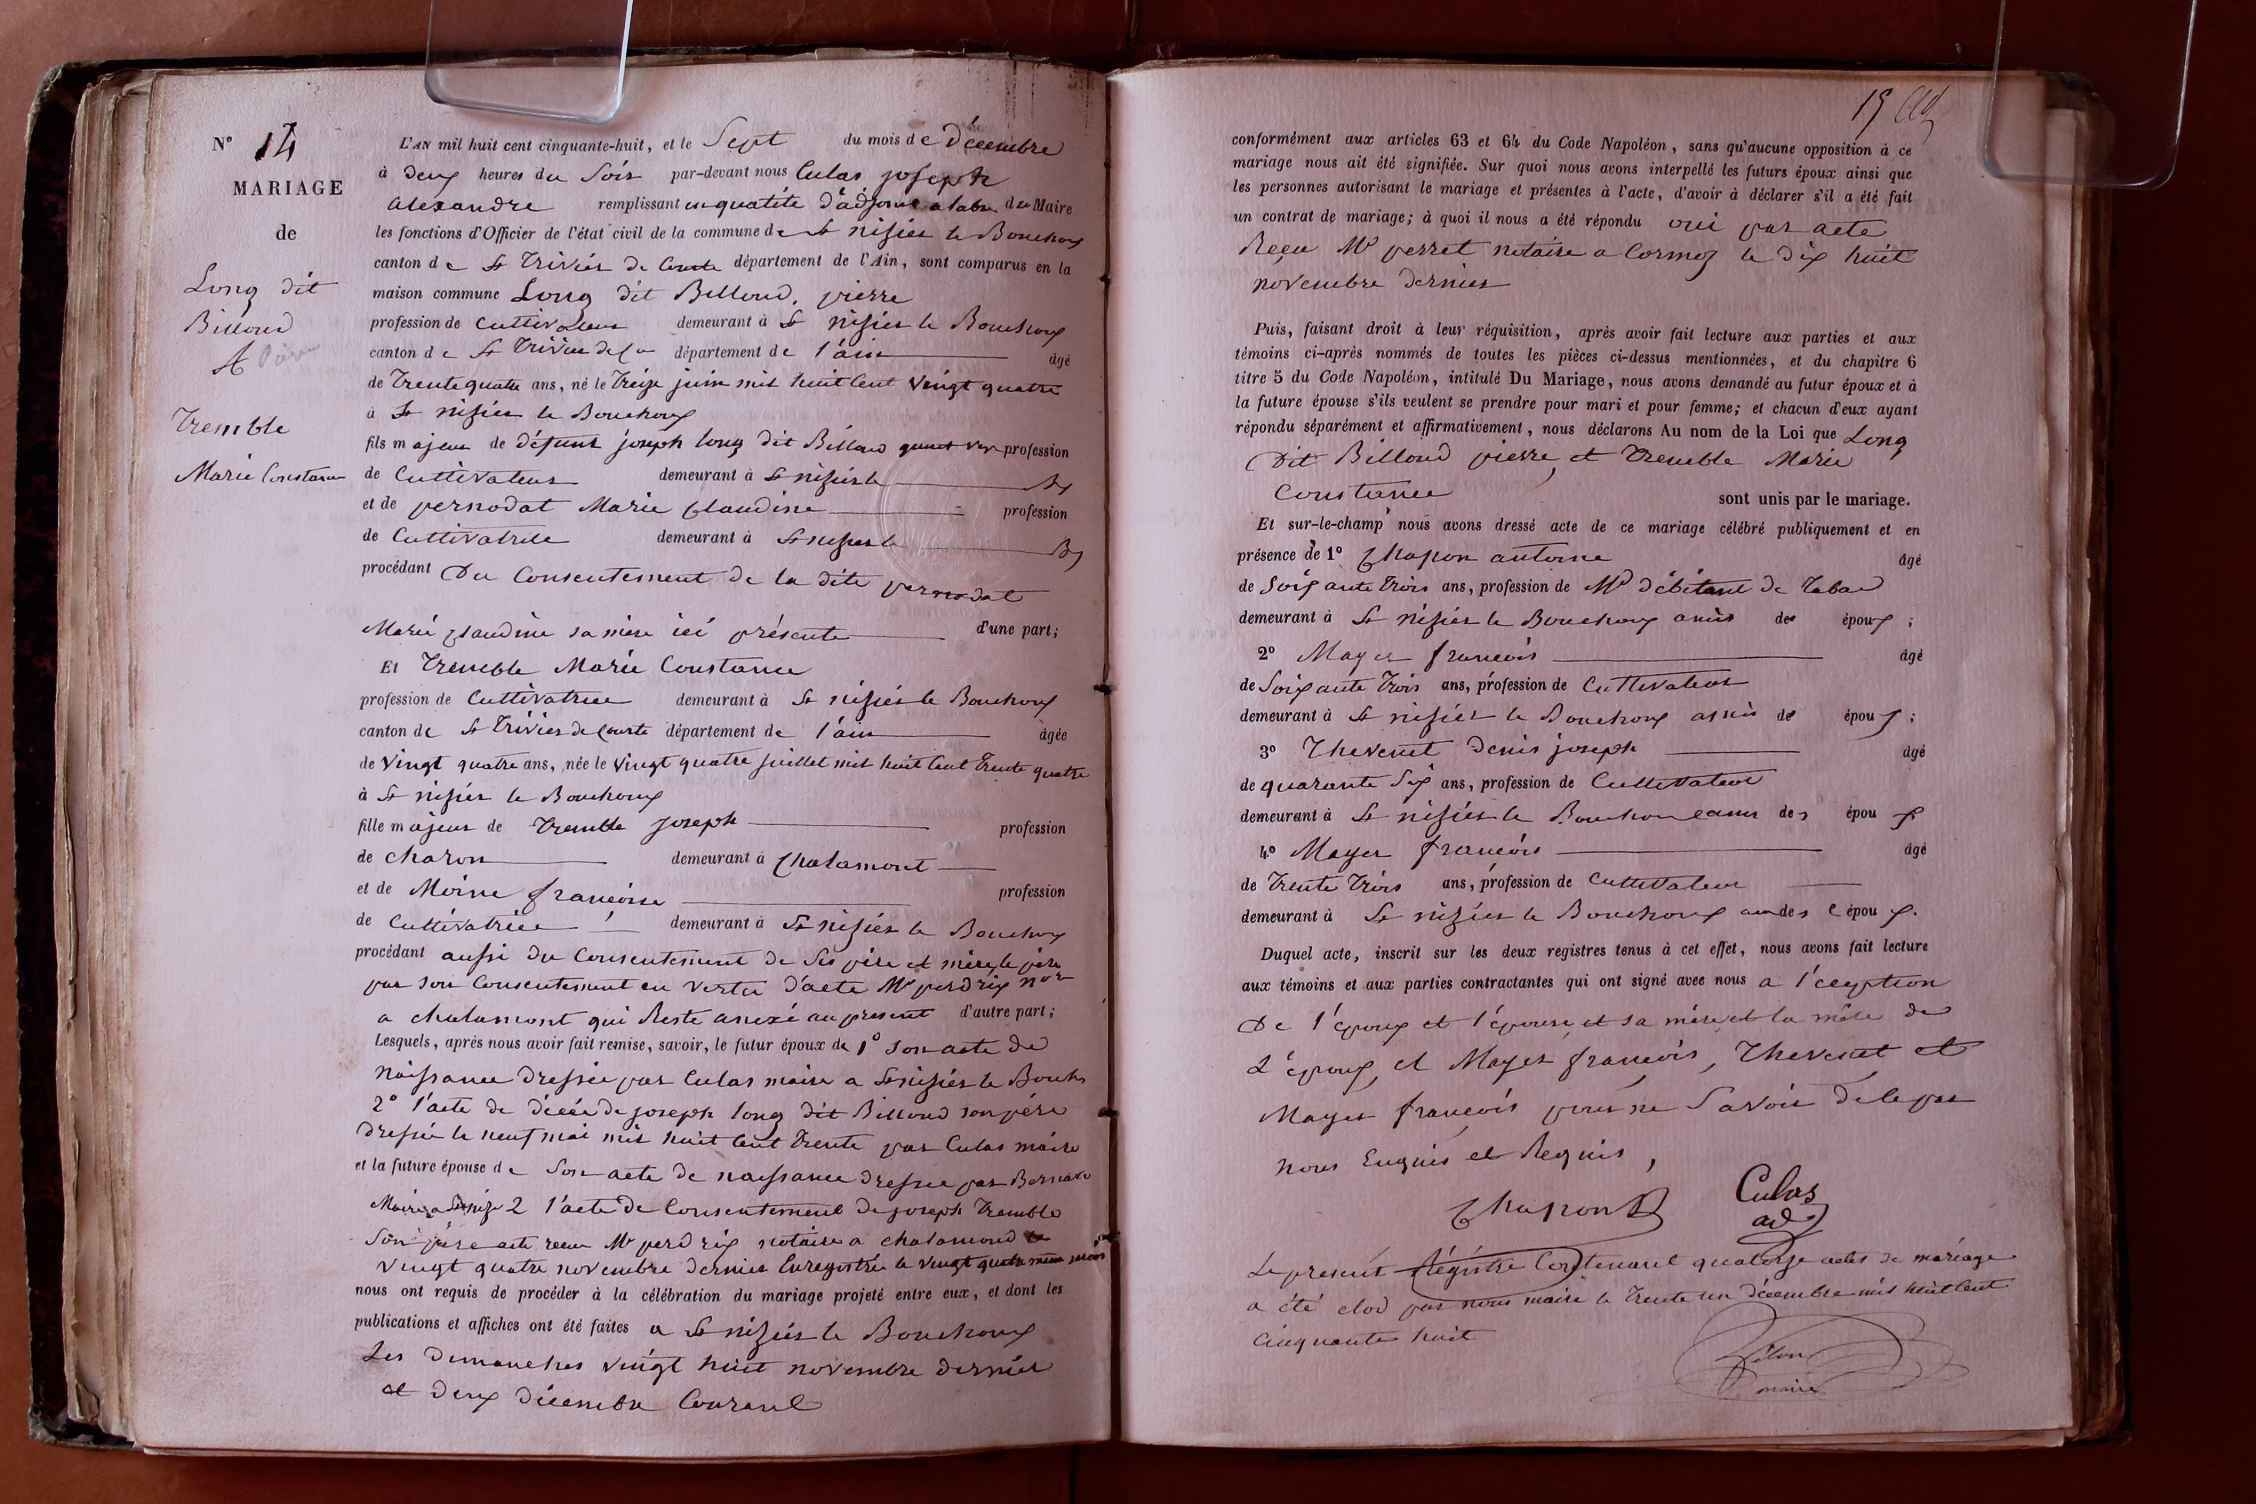 N° 14
MARIAGE
de
Long dit
Billoud
Pierre
Tremble
Marie Constance
L'AN mil huit cent cinquante-huit, et le Sept du mois de décembre
à deux heures du Soir par-devant nous Culas joseph
alexandre remplissant en quatité d'adjoint du Maire
les fonctions d'Officier de l'état civil de la commune de St nisiér le Bouchoux
canton de St Triviér de Courte département de l'Ain, sont comparus en la
maison commune Long dit Billoud, pierre
profession de Cultivateur demeurant à St nisiér le Bouchoux
canton de St Trivier de Co département de l'ain âgé
de Trente quatre ans, né le Treize juin mil huit Cent vingt quatre
à St nisiér le Bouchoux
fils majeur de défunt joseph long dit Billoud profession
de Cultivateur demeurant à St nisiér le Bx
et de pernodat Marie Claudine profession
de Cultivatrice demeurant à St nisier le Bx
procédant Du Consentement de la dite pernodat
Marie Claudine sa mère ici présente d'une part;
Et Tremble Marie Constance
profession de Cultivatrice demeurant à St nisiér le Bouchoux
canton de St Triviér de Courte département de l'ain âgée
de vingt quatre ans, née le vingt quatre juillet mil huit Cent Trente quatre
à St nisiér le Bouchoux
fille majeur de Tremble Joseph profession
de charon demeurant à Chalamont
et de Moine francoise profession
de Cultivatrice demeurant à St nisiér le Bouchoux
procédant aussi du Consentement de Ses père et mère, le père
par son Consentement en vertu d'acte Mr perdrix not
a chalamont qui Reste anexé au présent d'autre part;
Lesquels, après nous avoir fait remise, savoir, le futur époux de 1° son acte de
Naissance dressée par Culas maire a St nisiér le Bouch
2° l'acte de décée de joseph long dit Billoud son père
dressée le neuf mai mil huit Cent Trente par Culas maire
et la future épouse de Son acte de naissance dressee par Bernard
Maire a St niz 2 l'acte de Consentement de joseph Tremble
Son père acte recu Mr perdrix notaire a chalamond le
vingt quatre novembre dernier Enregistrée le vingt quatre même mois
nous ont requis de procéder à la célébration du mariage projeté entre eux, et dont les
publications et affiches ont été faites a St niziér le Bouchoux
Les dimanches vingt huit novembre dernier
et deux décembre Courant
15
conformément aux articles 63 et 64 du Code Napoléon, sans qu'aucune opposition à ce
mariage nous ait été signifiée. Sur quoi nous avons interpellé les futurs époux ainsi que
les personnes autorisant le mariage et présentes à l'acte, d'avoir à déclarer s'il a été fait
un contrat de mariage; à quoi il nous a été répondu oui par acte
Reçu Mr perret notaire a Cormoz le dix huit
novembre dernier
Puis, faisant droit à leur réquisition, après avoir fait lecture aux parties et aux
témoins ci-après nommés de toutes les pièces ci-dessus mentionnées, et du chapitre 6
titre 5 du Code Napoléon, intitulé Du Mariage, nous avons demandé au futur époux et à
la future épouse s'ils veulent se prendre pour mari et pour femme; et chacun d'eux ayant
répondu séparément et affirmativement, nous déclarons Au nom de la Loi que Long
Dit Billoud pierre, et Tremble Marie
Constance sont unis par le mariage.
Et sur-le-champ nous avons dressé acte de ce mariage célébré publiquement et en
présence de 1° Chapon antoine âgé
de Soixante Trois ans, profession de Md débitant de Tabac
demeurant à St niziér le Bouchoux amis des époux;
2° Mayer francois âgé
de Soixante Trois ans, profession de Cultivateur
demeurant à St niziér le Bouchoux amis de époux;
3° Thevenet Denis joseph âgé
de quarante Six ans, profession de Cultivateur
demeurant à St niziér le Bouchou amis des époux
4° Mayer francois âgé
de Trente Trois ans, profession de Cultivateur
demeurant à St niziér le Bouchoux des époux.
Duquel acte, inscrit sur les deux registres tenus à cet effet, nous avons fait lecture
aux témoins et aux parties contractantes qui ont signé avec nous a l'éception
De l'époux et l'épouse, et sa mère, et la mère de
L'époux, et Mayer francois, Thevenet et
Mayer francois pour ne Savoir de le par
nous Enquis et Requis,
Chapon Culas
adj
Le présent Régistre Contenant quatorze actes de mariage
a été clos par nous maire le Trente un décembre mil huit Cent
cinquante huit
maire